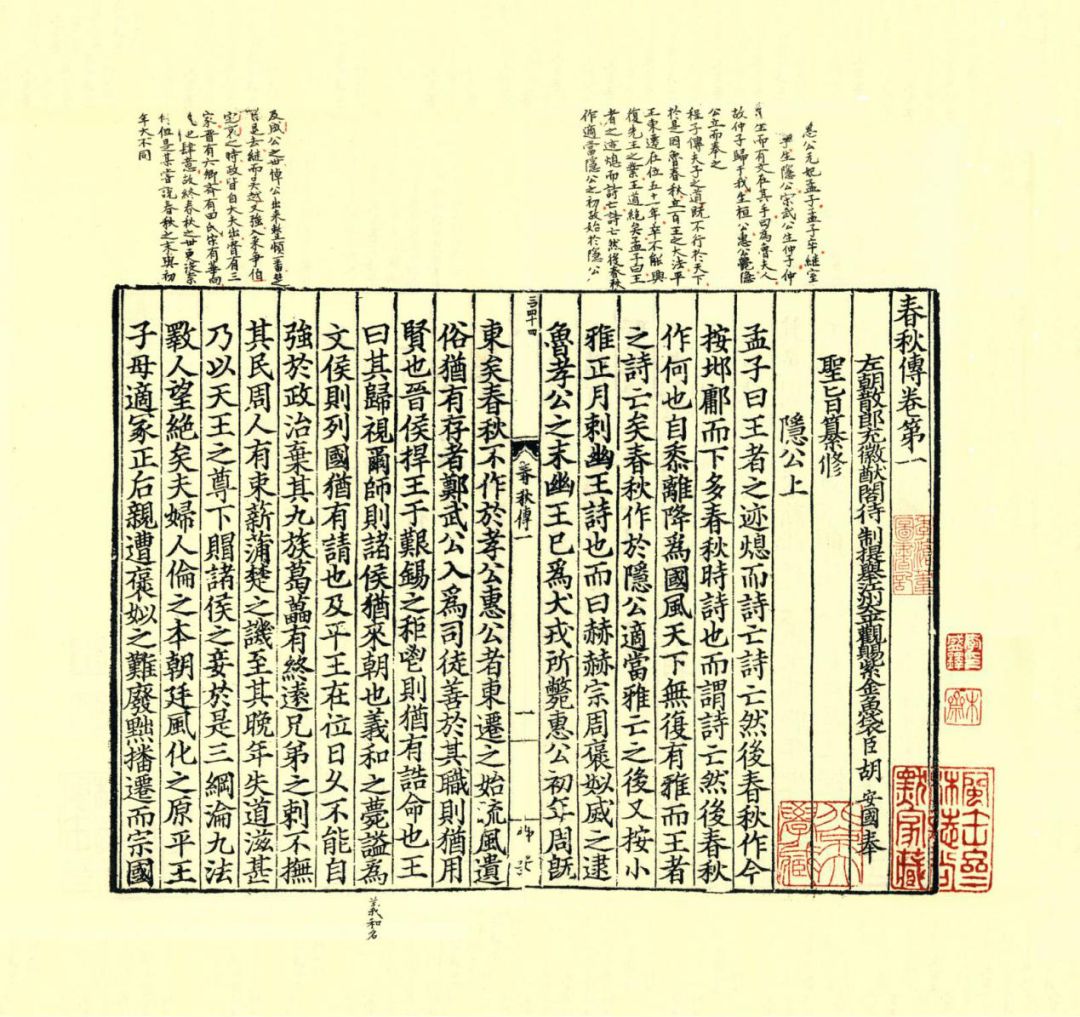 惠公元妃孟子孟子卒繼室
子生隱公宋武公生仲子仲
生而有文在其手曰為魯夫人
故仲子歸于我生桓公惠公薨隱
公立而奉之
程子傳夫子之道既不行於天下
於是因魯春秋立百王之大法平
王東遷在位五十一年卒不能興
復先王之業王道絕矣孟子曰王
者之迹熄而詩亡詩亡然後春秋
作適當隱公之初故始於隱公
及成公之世悼公出來整頓一番楚
是去繼而吳越又強入來爭伯
定哀之時政皆自大夫出魯有三
家晉有六卿齊有田氏宋有華向
他肆意故終春秋之世更沒奈
何但是某嘗說春秋之末與初
年大不同
春秋傳卷第一
左朝散郎充徽猷閣待制提舉江州太平觀賜紫金魚袋臣胡安國奉
聖旨纂修
隱公上
孟子曰王者之迹熄而詩亡詩亡然後春秋作今
按邶鄘而下多春秋時詩也而謂詩亡然後春秋
作何也自黍離降爲國風天下無復有雅而王者
之詩亡矣春秋作於隱公適當雅亡之後又按小
雅正月刺幽王詩也而曰赫赫宗周褒姒烕之逮
魯孝公之末幽王已爲犬戎所斃惠公初年周旣
春秋傳一
一
東矣春秋不作於孝公惠公者東遷之始流風遺
俗猶有存者鄭武公入爲司徒善於其職則猶用
賢也晉侯捍王于艱錫之秬鬯則猶有誥命也王
曰其歸視爾師則諸侯猶來朝也義和之薨謚爲
文侯則列國猶有請也及平王在位日久不能自
強於政治棄其九族葛藟有終遠兄弟之刺不撫
其民周人有束薪蒲楚之譏至其晚年失道滋甚
乃以天王之尊下賵諸侯之妾於是三綱淪九法
斁人望絕矣夫婦人倫之本朝廷風化之原平王
子母適冢正后親遭褒姒之難廢黜播遷而宗國
義和名